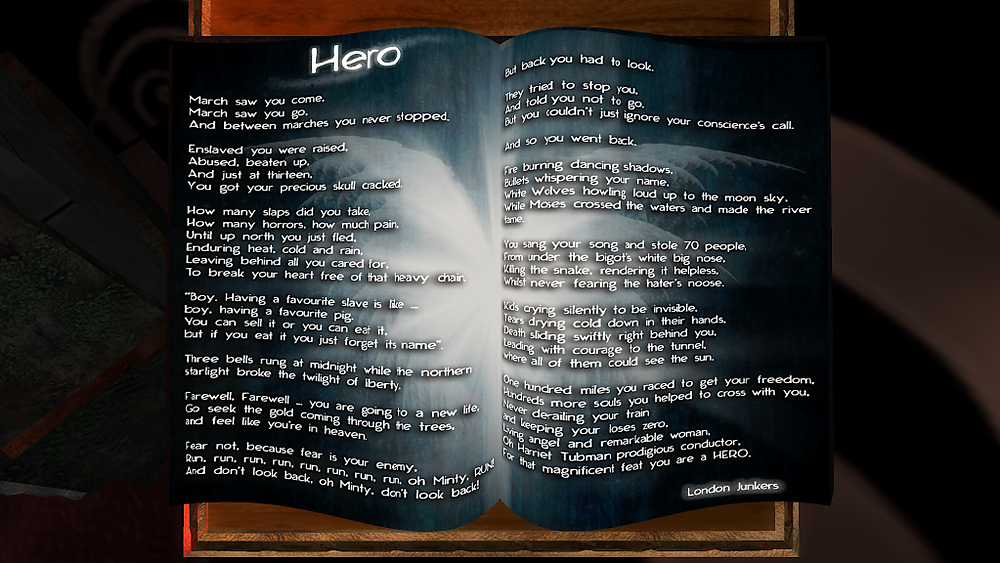 Hero
March saw you come,
March saw you go.
And between marches you never stopped.
Enslaved you were raised,
Abused, beaten up,
And just at thirteen,
You got your precious skull cracked.
How many slaps did you take,
How many horrors, how much pain,
Until up north you just fled,
Enduring heat, cold and rain,
Leaving behind all you cared for,
To break your heart free of that heavy chain.
"Boy. Having a favourite slave is like –
boy, having a favourite pig.
You can sell it or you can eat it,
but if you eat it you just forget its name".
Three bells rung at midnight while the northern
starlight broke the twilight of liberty.
Farewell, Farewell – you are going to a new life,
Go seek the gold coming through the trees,
and feel like you're in heaven.
Fear not, because fear is your enemy.
Run, run, run, run, run, run, run, run, oh Minty, RUN!
And don't look back, oh Minty, don't look back!
But back you had to look.
They tried to stop you,
And told you not to go.
But you couldn't just ignore your conscience's call.
And so you went back.
Fire burnng dancing shadows,
Bullets whispering your name,
White Wolves howling loud up to the moon sky,
While Moses crossed the waters and made the river
tame.
You sang your song and stole 70 people,
From under the bigot's white big nose,
Killing the snake, rendering it helpless,
Whilst never fearing the hater's noose.
Kids crying silently to be invisible,
Tears drying cold down in their hands,
Death sliding swiftly right behind you,
Leading with courage to the tunnel,
where all of them could see the sun.
One hundred miles you raced to get your freedom,
Hundreds more souls you helped to cross with you,
Never derailing your train
and keeping your loses zero.
Living angel and remarkable woman,
Oh Harriet Tubman prodigious conductor,
For that magnificent feat you are a HERO.
London Junkers